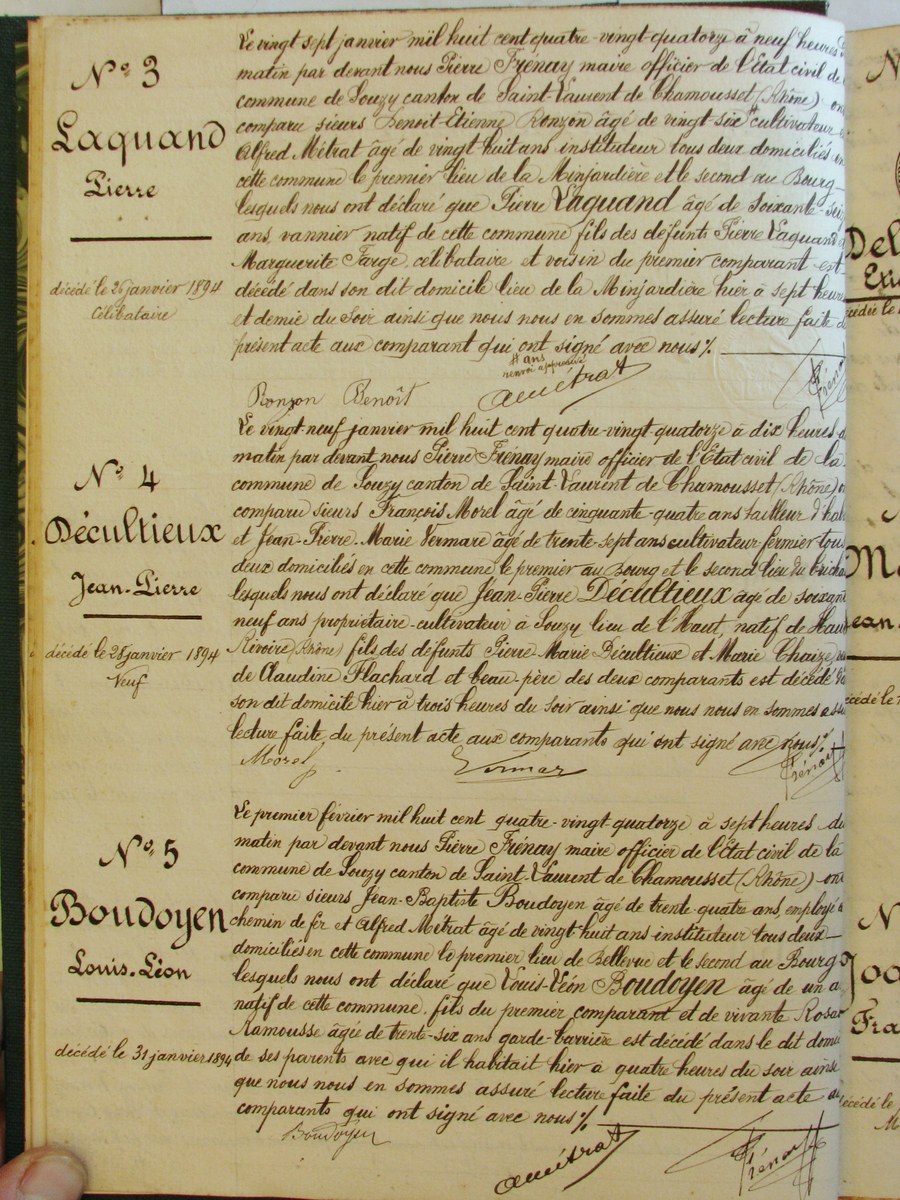 N° 3
Laquand
Pierre
décédé le 26 janvier 1894
Célibataire
Le vingt sept janvier mil huit cent quatre-vingt-quatorze à neuf heures
matin par devant nous Pierre Frénay maire officier de l'Etat civil de
commune de Souzy canton de Saint-Laurent de Chamousset (Rhône) ont
comparu sieurs Benoit-Etienne Ronzon âgé de vingt-six # cultivateur et
Alfred Métrat âgé de vingt huit ans instituteur tous deux domiciliés en
cette commune le premier lieu de la Minjardière et le second au Bourg—
lesquels nous ont déclaré que Pierre Laquand âgé de soixante-
ans, vannier natif de cette commune fils des défunts Pierre Laquand
Marguerite Farge, célibataire et voisin du premier comparant est
décédé dans son dit domicile lieu de la Minjardière hier à sept heures
et demie du soir ainsi que nous nous en sommes assuré lecture faite
présent acte aux comparant qui ont signé avec nous ./.
# ans
renvoi approuvé
Ronzon Benoît
AMétrat
Frénay
N° 4
Décultieux
Jean-Pierre
décédé le 28 janvier 1894
Veuf
Le vingt-neuf janvier mil huit cent quatre-vingt-quatorze à dix heures
matin par devant nous Pierre Frénay maire officier de l'Etat civil de la
commune de Souzy canton de Saint-Laurent de Chamousset (Rhône)
comparu sieurs François Morel âgé de cinquante-quatre ans tailleur d'
et Jean-Pierre-Marie Vermare âgé de trente-sept ans cultivateur-fermier tous
deux domiciliés en cette commune le premier au Bourg et le second lieu du
lesquels nous ont déclaré que Jean-Pierre Décultieux âgé de
neuf ans propriétaire-cultivateur à Souzy lieu de l'Haut, natif de
Rivoire (Rhône) fils des défunts Pierre-Marie Décultieux et Marie Chaize,
de Claudine Flachard et beau-père des deux comparants est décédé
son dit domicile hier à trois heures du soir ainsi que nous nous en sommes
lecture faite du présent acte aux comparants qui ont signé avec nous ./.
Morel
Vermar
Frénay
N° 5
Boudoyen
Louis-Léon
décédé le 31 janvier 1894
Le premier février mil huit cent quatre-vingt-quatorze à sept heures du
matin par devant nous Pierre Frénay maire officier de l'Etat civil de la
commune de Souzy canton de Saint-Laurent de Chamousset (Rhône) ont
comparu sieurs Jean-Baptiste Boudoyen âgé de trente-quatre ans, employé
chemin de fer et Alfred Métrat âgé de vingt huit ans instituteur tous deux—
domiciliés en cette commune le premier lieu de Bellevue et le second au Bourg
lesquels nous ont déclaré que Louis-Léon Boudoyen âgé de un
natif de cette commune, fils du premier comparant et de vivante
Ramousse âgée de trente-six ans garde-barrière est décédé dans le dit
de ses parents avec qui il habitait hier à quatre heures du soir ainsi
que nous nous en sommes assuré lecture faite du présent acte
comparants qui ont signé avec nous ./.
Boudoyen
AMétrat
Frénay